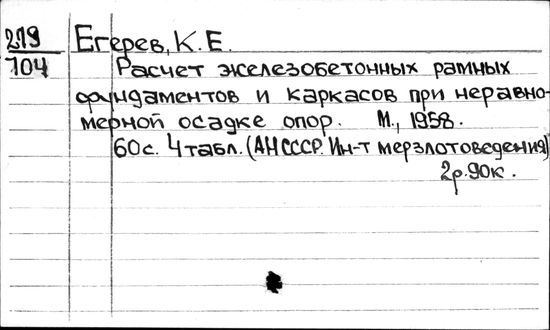 219 Егерев, К. Е.
104 Расчет железобетонных рамных
фундаментов и каркасов при неравно-
мерной осадке опор. М., 1958.
60с. 4табл. (АНСССР. Ин-т мерзлотоведения)
2р.90к.